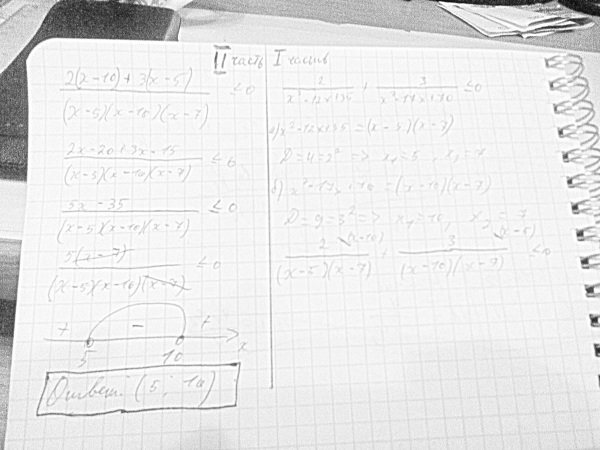 II часть
2(x-10)+3(x-5)
(x-5)(x-10)(x-7) ≤0
2x-20+3x-15
(x-5)(x-10)(x-7) ≤0
5x-35
(x-5)(x-10)(x-7) ≤0
5(x-7)
(x-5)(x-10)(x-7) ≤0
+ - +
5 10 x
Ответ: (5; 10)
I часть
2 3
x²-12x+35 + x²-17x+70 ≤0
а) x²-12x+35=(x-5)(x-7)
D=4=2² => x₁=5, x₂=7
б) x²-17x+70=(x-10)(x-7)
D=9=3² => x₁=10, x₂=7
2 (x-10) 3 (x-5)
(x-5)(x-7) + (x-10)(x-7) ≤0